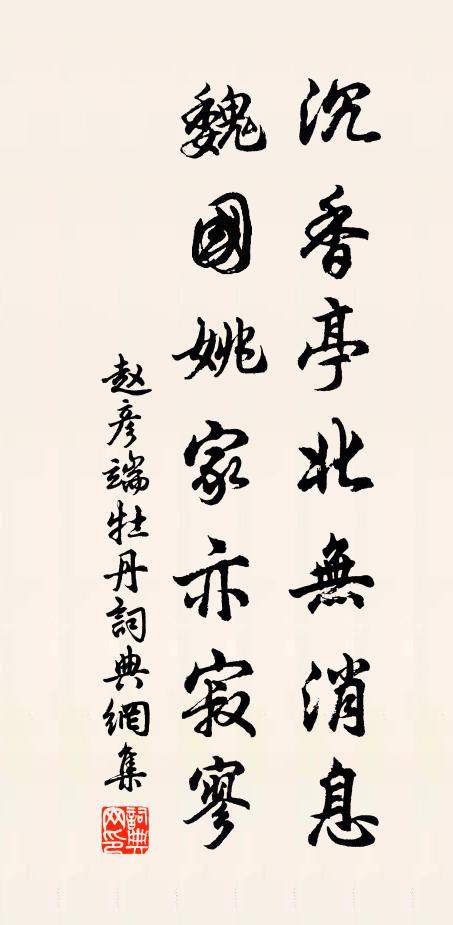 沉香亭北無消息
魏國姚家亦寂寥
赵彦端牡丹詞典網集
詞典网印